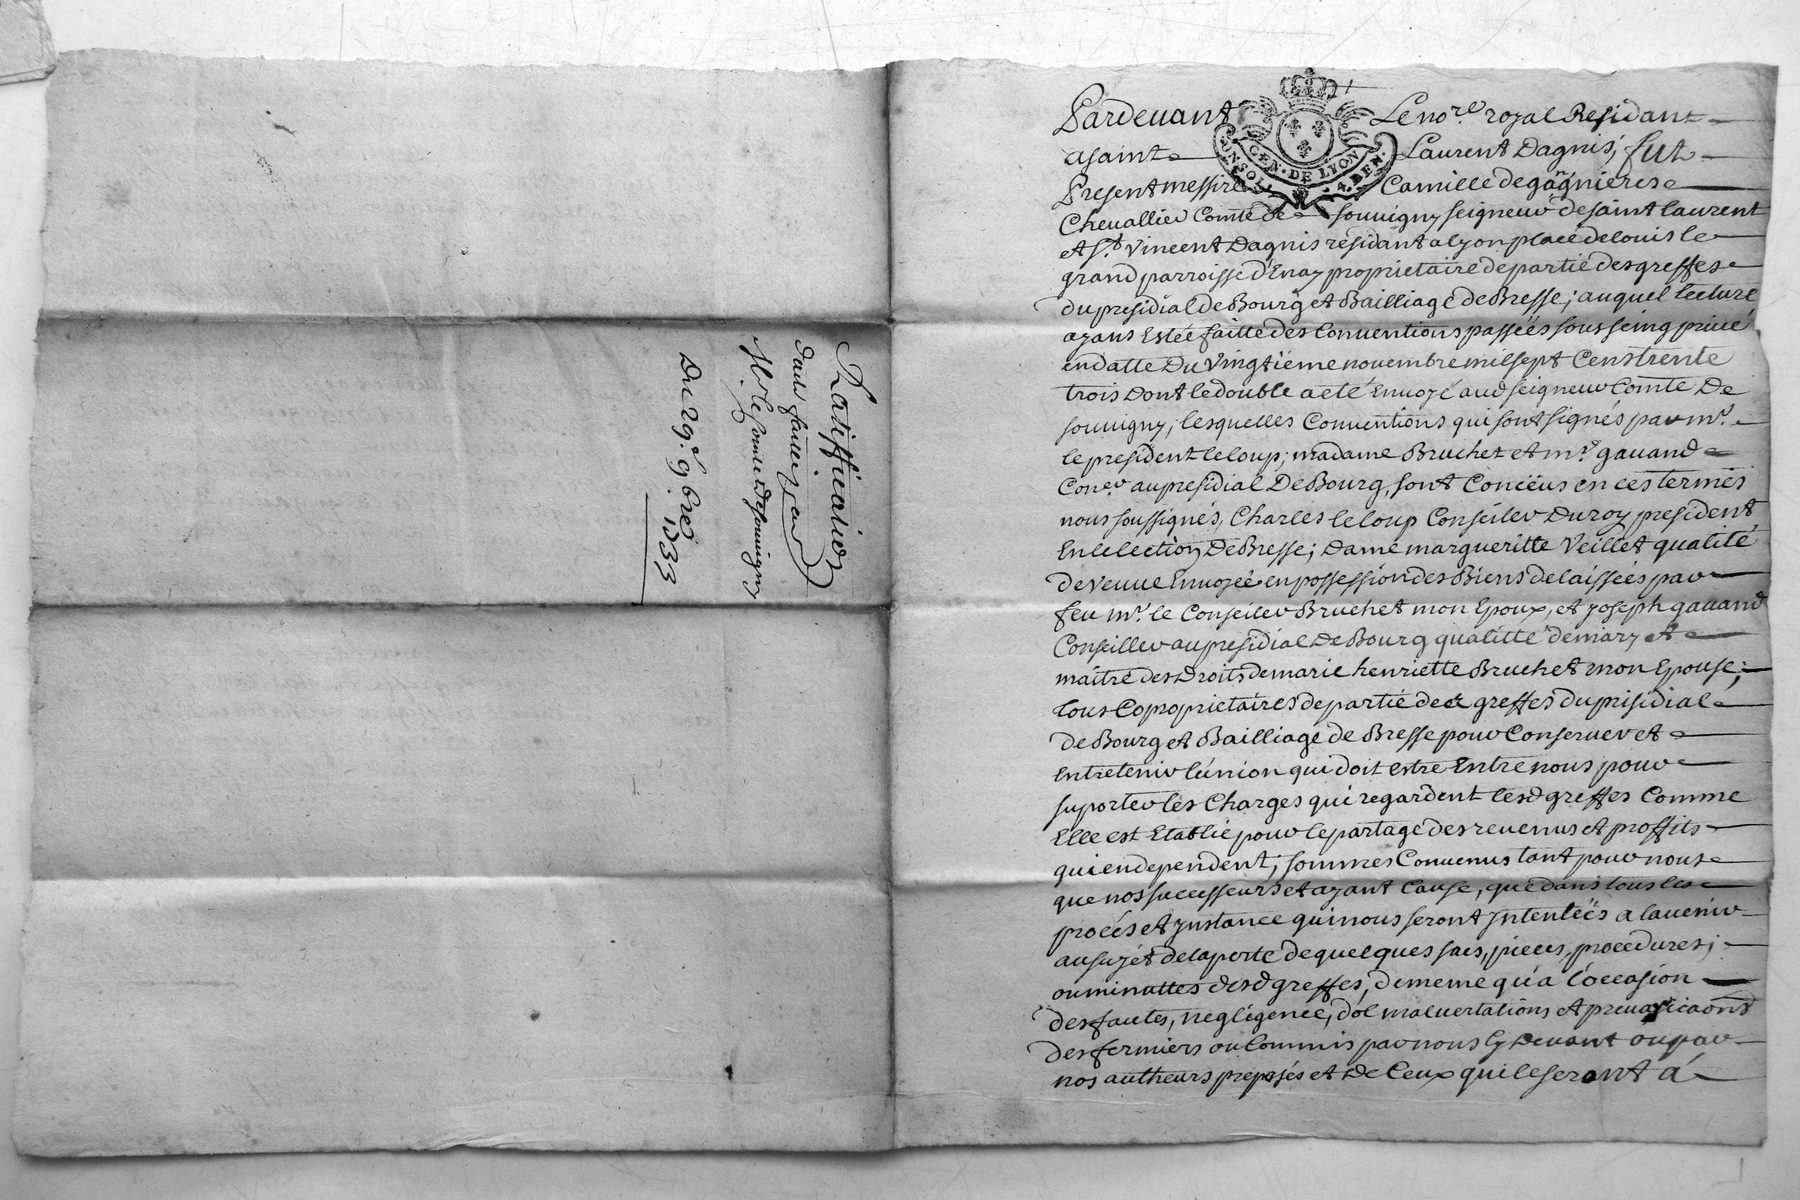 Ratiffication
dans
M. le Comte de Souvigny
Du 29.e 9bre
1733
GEN. DE LYON
4. DEN.
Pardevant Le no.re royal Residant
a saint Laurent Dagnis, fut
Present messire Camille de gangnieres
Chevallier Comte de souvigny seigneur de saint laurent
et S.t Vincent Dagnis résidant a lyon place de louis le
grand parroisse d'Enay proprietaire de partie des greffes
du presidial de Bourg et Bailliage de Bresse; auquel lecture
ayans Estée faitte des Conventions passeës sous seing privé
en datte Du Vingtiéme novembre mil sept Cens trente
trois Dont le double a eté Envoyé aud seigneur Comte De
souvigny; lesquelles Conventions qui sont signés par m.r
le president le loup; madame Bruchet et m.r gavand
Con.er au presidial De Bourg, sont Conceüs en ces termes
nous soussignés, Charles le loup Conseiler Du roy president
En lelection De Bresse; Dame margueritte Veillet qualité
de veuve Envoyée en possession des Biens delaissées par
feu m.r le Conseiler Bruchet mon Epoux, et joseph gavand
Conseiller au presidial De Bourg qualitté de mary et
maitre des Droits de marie henriette Bruchet mon Epouse;
tous Coproprietaires de partie des greffes du prisidial
de Bourg et Bailliage de Bresse pour Conserver et
Entretenir lúnion qui doit estre Entre nous pour
suporter les Charges qui regardent lesd greffes Comme
Elle est Etablie pour le partage des revenus et proffits
qui en dependent; sommes Convenus tant pour nous
que nos successeurs et ayant Cause, que dans tous les
procés et jnstance qui nous seront jntenteës a lavenir
au sujét de la perte de quelques sacs, pieces, procedures;
ou minuttes desd greffes, de meme qu'a l'occasion
des fautes, negligence, dol malvertations et prevaricaons
des fermiers ou Commis par nous Cy Devant ou par
nos autheurs preposés et De Ceux qui le seront á